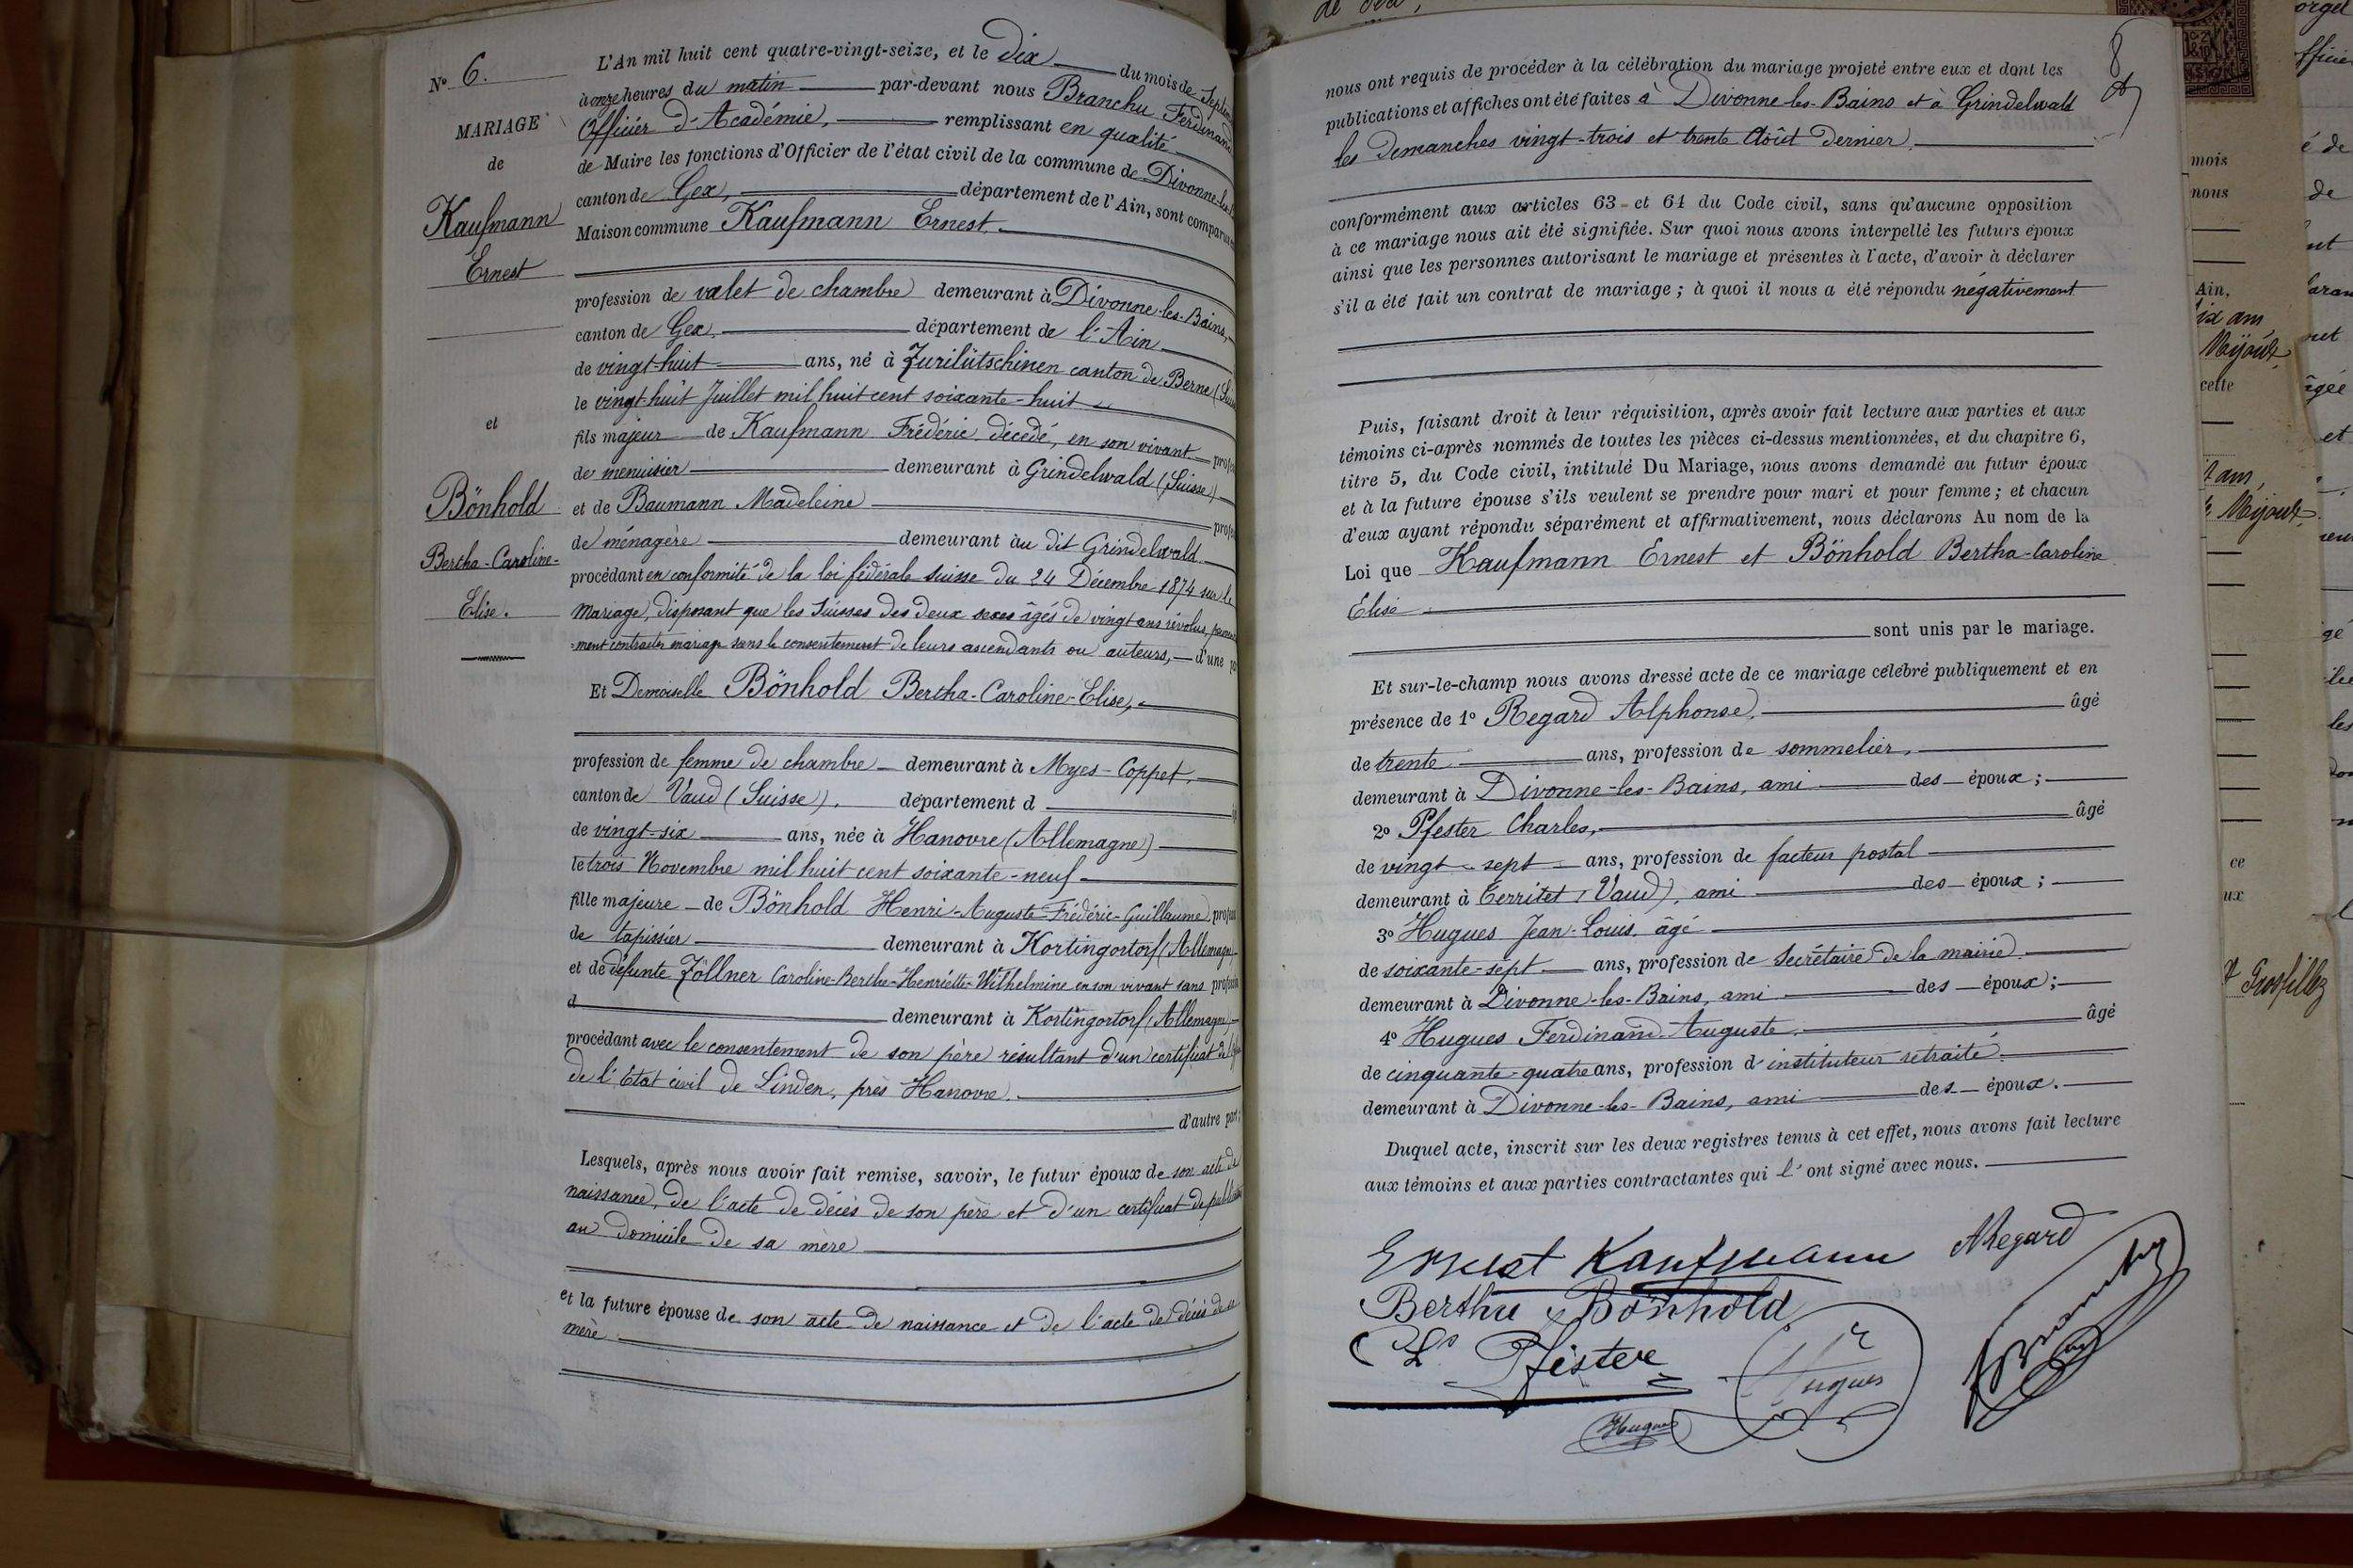 N° 6.
MARIAGE
de
Kaufmann
Ernest
et
Bönhold
Bertha-Caroline-
Elise.
L'An mil huit cent quatre-vingt-seize, et le Dix du mois de Septem
à onze heures du matin par-devant nous Branchu Ferdinand
Officier d'Académie, remplissant en qualité
de Maire les fonctions d'Officier de l'état civil de la commune de Divonne-les-B
canton de Gex, département de l'Ain, sont comparus
Maison commune Kaufmann Ernest.
profession de valet de chambre demeurant à Divonne-les-Bains,
canton de Gex, département de l'Ain
de vingt-huit ans, né à Zurilütschinen canton de Berne (Suisse
le vingt-huit Juillet mil huit cent soixante-huit
fils majeur de Kaufmann Frédéric décédé, en son vivant profes
de menuisier demeurant à Grindelwald (Suisse)
et de Baumann Madeleine profes
de ménagère demeurant au dit Grindelwald
procédant en conformité de la loi fédérale suisse du 24 Décembre 1874 sur le
mariage, disposant que les Suisses des deux sexes âgés de vingt ans révolus,
-ment contracter mariage sans le consentement de leurs ascendants ou auteurs, d'une pa
Et Demoiselle Bönhold Bertha-Caroline-Elise,
profession de femme de chambre demeurant à Myes-Coppet,
canton de Vaud (Suisse). département d
de vingt-six ans, née à Hanovre (Allemagne)
le trois Novembre mil huit cent soixante-neuf
fille majeure de Bönhold Henri-Auguste-Frédéric-Guillaume, profess
de tapissier demeurant à Kortingortorf (Allemagne)
et de défunte Zöllner Caroline-Berthe-Henriette-Wilhelmine en son vivant sans profession
d demeurant à Kortingortorf (Allemagne)
procédant avec le consentement de son père résultant d'un certificat de
de l'Etat civil de Linden, près Hanovre.
d'autre part;
Lesquels, après nous avoir fait remise, savoir, le futur époux de son acte de
naissance, de l'acte de décès de son père et d'un certificat de publication
au domicile de sa mère
et la future épouse de son acte de naissance et de l'acte de décès de sa
mère
8
nous ont requis de procéder à la célébration du mariage projeté entre eux et dont les
publications et affiches ont été faites à Divonne-les-Bains et à Grindelwald
les Dimanches vingt-trois et trente Août dernier,
conformément aux articles 63 et 64 du Code civil, sans qu'aucune opposition
à ce mariage nous ait été signifiée. Sur quoi nous avons interpellé les futurs époux
ainsi que les personnes autorisant le mariage et présentes à l'acte, d'avoir à déclarer
s'il a été fait un contrat de mariage ; à quoi il nous a été répondu négativement
Puis, faisant droit à leur réquisition, après avoir fait lecture aux parties et aux
témoins ci-après nommés de toutes les pièces ci-dessus mentionnées, et du chapitre 6,
titre 5, du Code civil, intitulé Du Mariage, nous avons demandé au futur époux
et à la future épouse s'ils veulent se prendre pour mari et pour femme ; et chacun
d'eux ayant répondu séparément et affirmativement, nous déclarons Au nom de la
Loi que Kaufmann Ernest et Bönhold Bertha-Caroline
Elise
sont unis par le mariage.
Et sur-le-champ nous avons dressé acte de ce mariage célébré publiquement et en
présence de 1° Regard Alphonse, âgé
de trente ans, profession de sommelier,
demeurant à Divonne-les-Bains, ami des époux ;
2° Pfester Charles, âgé
de vingt-sept ans, profession de facteur postal
demeurant à Territet (Vaud), ami des époux ;
3° Hugues Jean-Louis, âgé
de soixante-sept ans, profession de Secrétaire de la mairie
demeurant à Divonne-les-Bains, ami des époux ;
4° Hugues Ferdinand-Auguste, âgé
de cinquante-quatre ans, profession d'instituteur retraité
demeurant à Divonne-les-Bains, ami des époux.
Duquel acte, inscrit sur les deux registres tenus à cet effet, nous avons fait lecture
aux témoins et aux parties contractantes qui l'ont signé avec nous.
Ernest Kaufmann ARegard
Bertha Bönhold
Chs Pfister
Hugues
Hugues
mois
nous
Ain,
Mijoux,
cette
Mijoux
ce
ux
Grosfillez